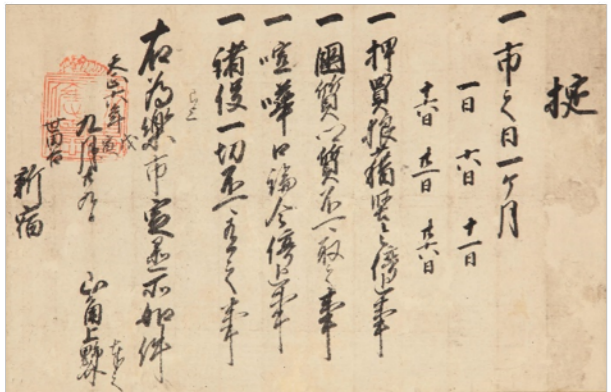 掟
一 市之日一ヶ月
一日 六日 十一日
十六日 廿一日 廿六日
一 押買狼藉堅令停止事
一 國質郷質不可取之事
一 喧嘩口論令停止事
一 諸役一切不可有之事
已上
右為樂市定置所如件
天正六年戊寅
九月廿九日
山角上野介 奉之
世田谷
新宿